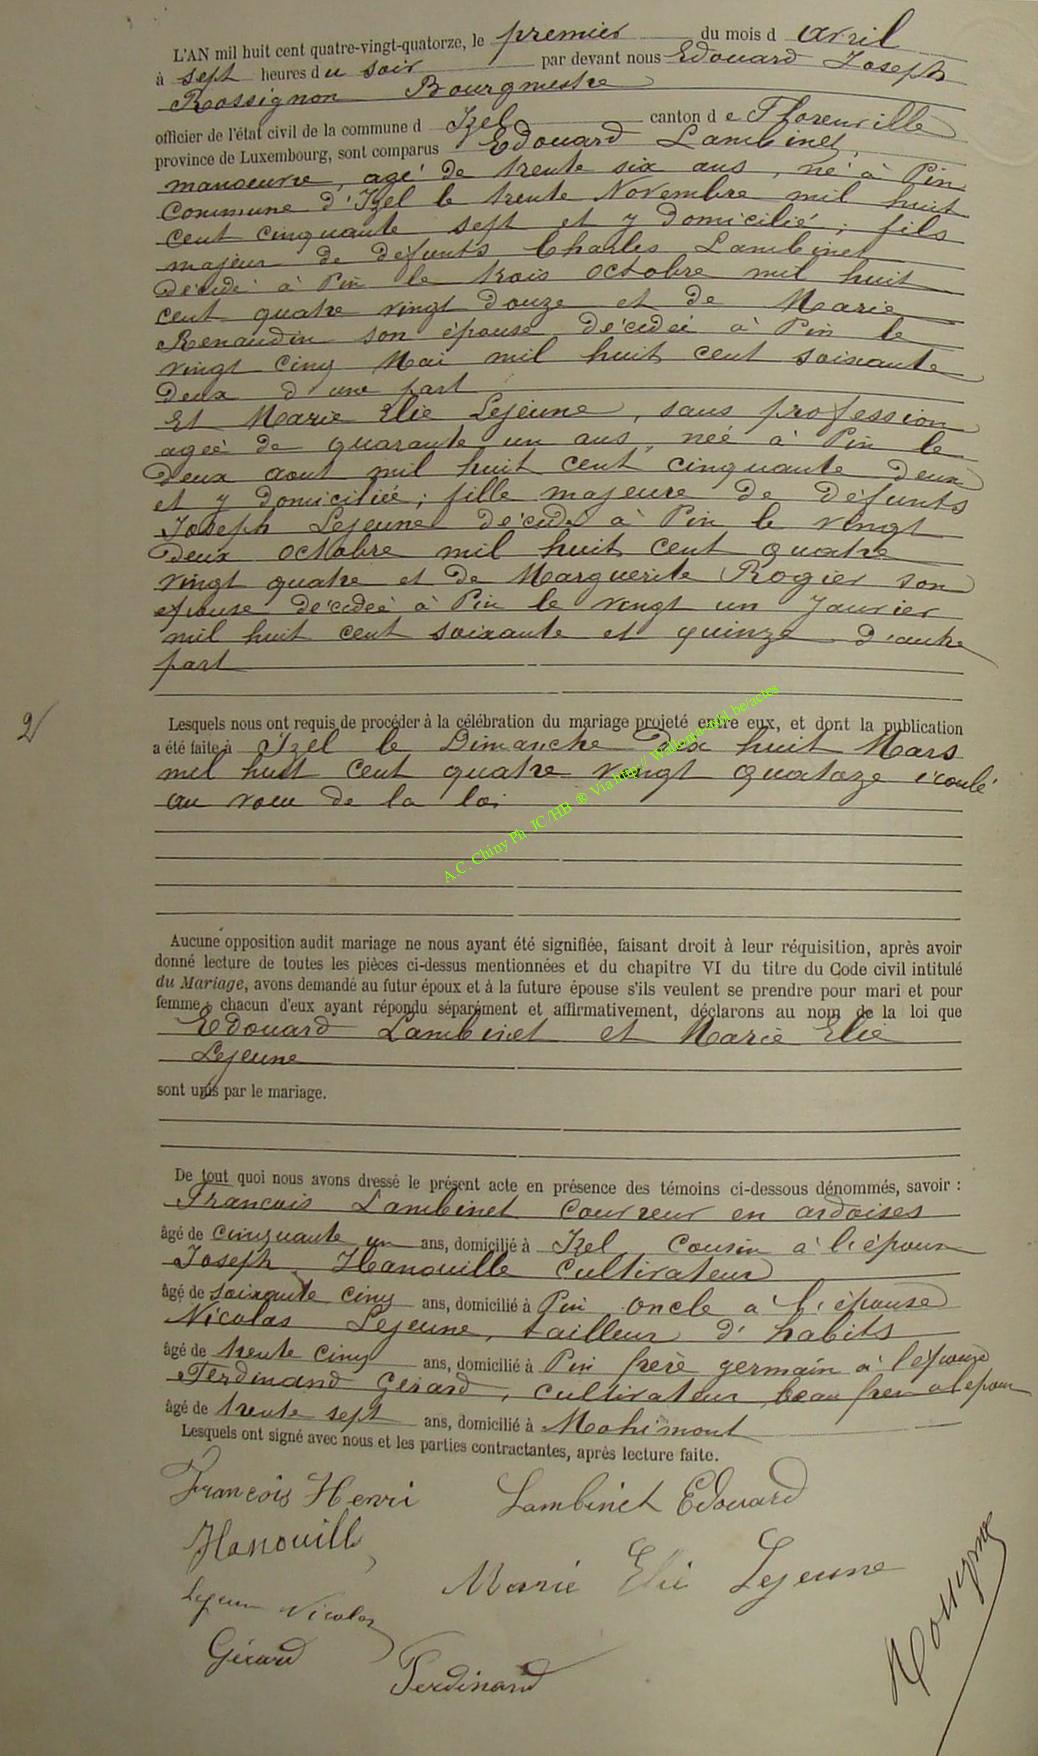 L'AN mil huit cent quatre-vingt-quatorze, le premier du mois d avril
à sept heures du soir par devant nous Edouard Joseph
Rossignon Bourgmestre
officier de l'état civil de la commune d Izel canton d e Florenville
province de Luxembourg, sont comparus Edouard Lambinet,
manoeuvre, agé de trente six ans, né à Pin
Commune d'Izel le trente Novembre mil huit
cent cinquante sept et y domicilié; fils
majeur de défunts Charles Lambinet
décédé à Pin le trois octobre mil huit
cent quatre vingt douze et de Marie
Renaudin son épouse décédeé à Pin le
vingt cinq Mai mil huit cent soixante
deux d'une part
Et Marie Elie Lejeune, sans profession
ageé de quarante un ans, neé à Pin le
deux aout mil huit cent cinquante deux
et y domiciliée; fille majeure de défunts
Joseph Lejeune décédé à Pin le vingt
deux octobre mil huit cent quatre
vingt quatre et de Marguerite Rogier son
epouse décédeé à Pin le vingt un Janvier
mil huit cent soixante et quinze d'autre
part
2
Lesquels nous ont requis de procéder à la célébration du mariage projeté entre eux, et dont la publication
a été faite à Izel le Dimanche dix huit Mars
mil huit cent quatre vingt quatoze écoulé
au voeu de la loi
A.C. Chiny Ph JC/HB ® Via http:// Wallonia-asbl.be/actes
Aucune opposition audit mariage ne nous ayant été signifiée, faisant droit à leur réquisition, après avoir
donné lecture de toutes les pièces ci-dessus mentionnées et du chapitre VI du titre du Code civil intitulé
du Mariage, avons demandé au futur époux et à la future épouse s'ils veulent se prendre pour mari et pour
femme; chacun d'eux ayant répondu séparément et affirmativement, déclarons au nom de la loi que
Edouard Lambinet et Marie Elie
Lejeune
sont unis par le mariage.
De tout quoi nous avons dressé le présent acte en présence des témoins ci-dessous dénommés, savoir :
Francois Lambinet Couvreur en ardoises
âgé de cinquante un ans, domicilié à Izel Cousin à l'époux
Joseph Hanouille Cultivateur
âgé de soixante cinq ans, domicilié à Pin oncle à l'épouse
Nicolas Lejeune, tailleur d'habits
âgé de trente cinq ans, domicilié à Pin frère germain à l'épouse
Ferdinand Gérard, cultivateur beau frere a lepoux
âgé de trente sept ans, domicilié à Mohimont
Lesquels ont signé avec nous et les parties contractantes, après lecture faite.
François Henri Lambinet Edouard
Hanouill
Marie Elie Lejeune
Lejeune Nicolas
Gérard Ferdinand